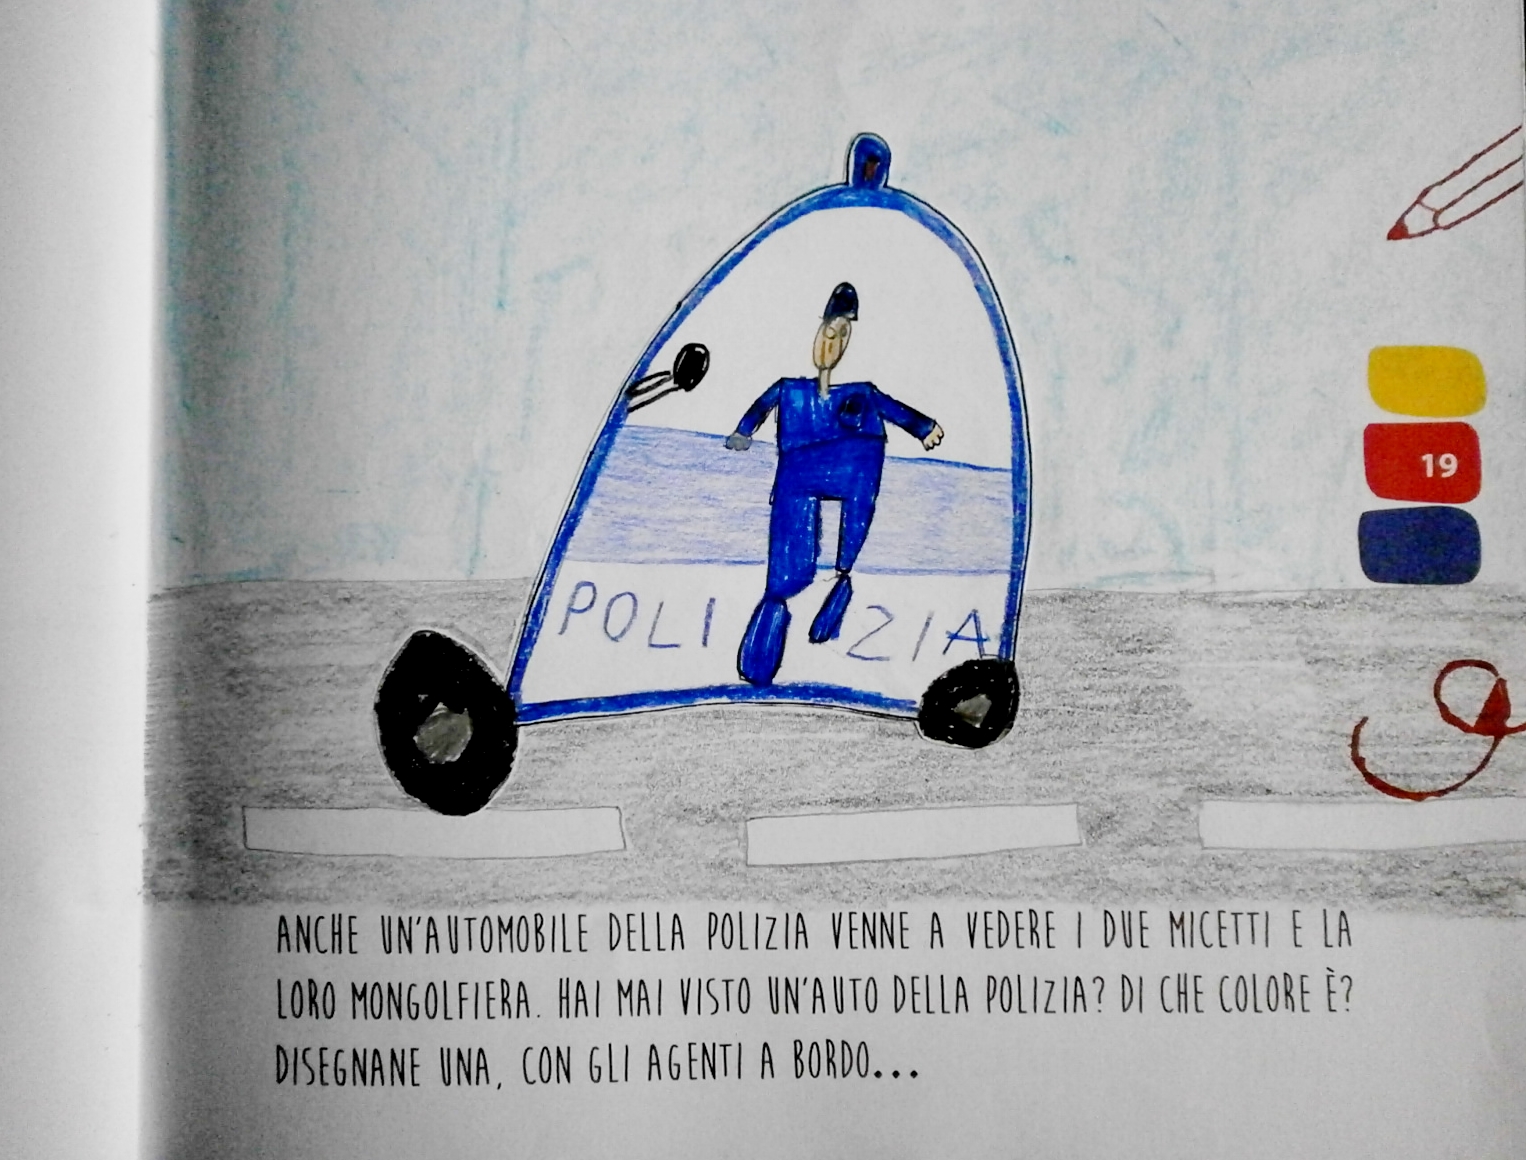 POLI ZIA
19
ANCHE UN'AUTOMOBILE DELLA POLIZIA VENNE A VEDERE I DUE MICETTI E LA
LORO MONGOLFIERA. HAI MAI VISTO UN'AUTO DELLA POLIZIA? DI CHE COLORE È?
DISEGNANE UNA, CON GLI AGENTI A BORDO...